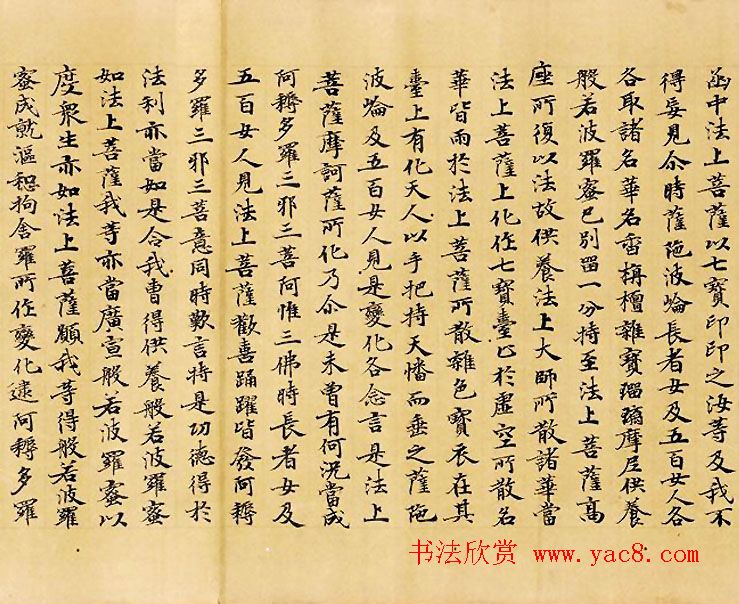 函中法上菩薩以七寶印印之汝等及我不
得妄見尒時薩陁波崙長者女及五百女人各
各取諸名華名香栴檀雜寶瑠璃摩尼供養
般若波羅蜜已別留一分持至法上菩薩髙
座所復以法故供養法上大師所散諸華當
法上菩薩上化作七寶臺止於虛空所散名
華皆雨於法上菩薩所散雜色寶衣在其
臺上有化天人以手把持天幡而垂之薩陁
波崘及五百女人見是變化各念言是法上
菩薩摩訶薩所化乃尒是未曽有何況當成
阿耨多羅三邪三菩阿惟三佛時長者女及
五百女人見法上菩薩歡喜踊躍皆發阿耨
多羅三邪三菩意同時歎言持是功德得於
法利亦當如是令我曹得供養般若波羅蜜
如法上菩薩我等亦當廣宣般若波羅蜜以
度衆生亦如法上菩薩願我等得般若波羅
蜜成就漚惒拘舍羅所作變化逮阿耨多羅
书法欣赏 www.yac8.com